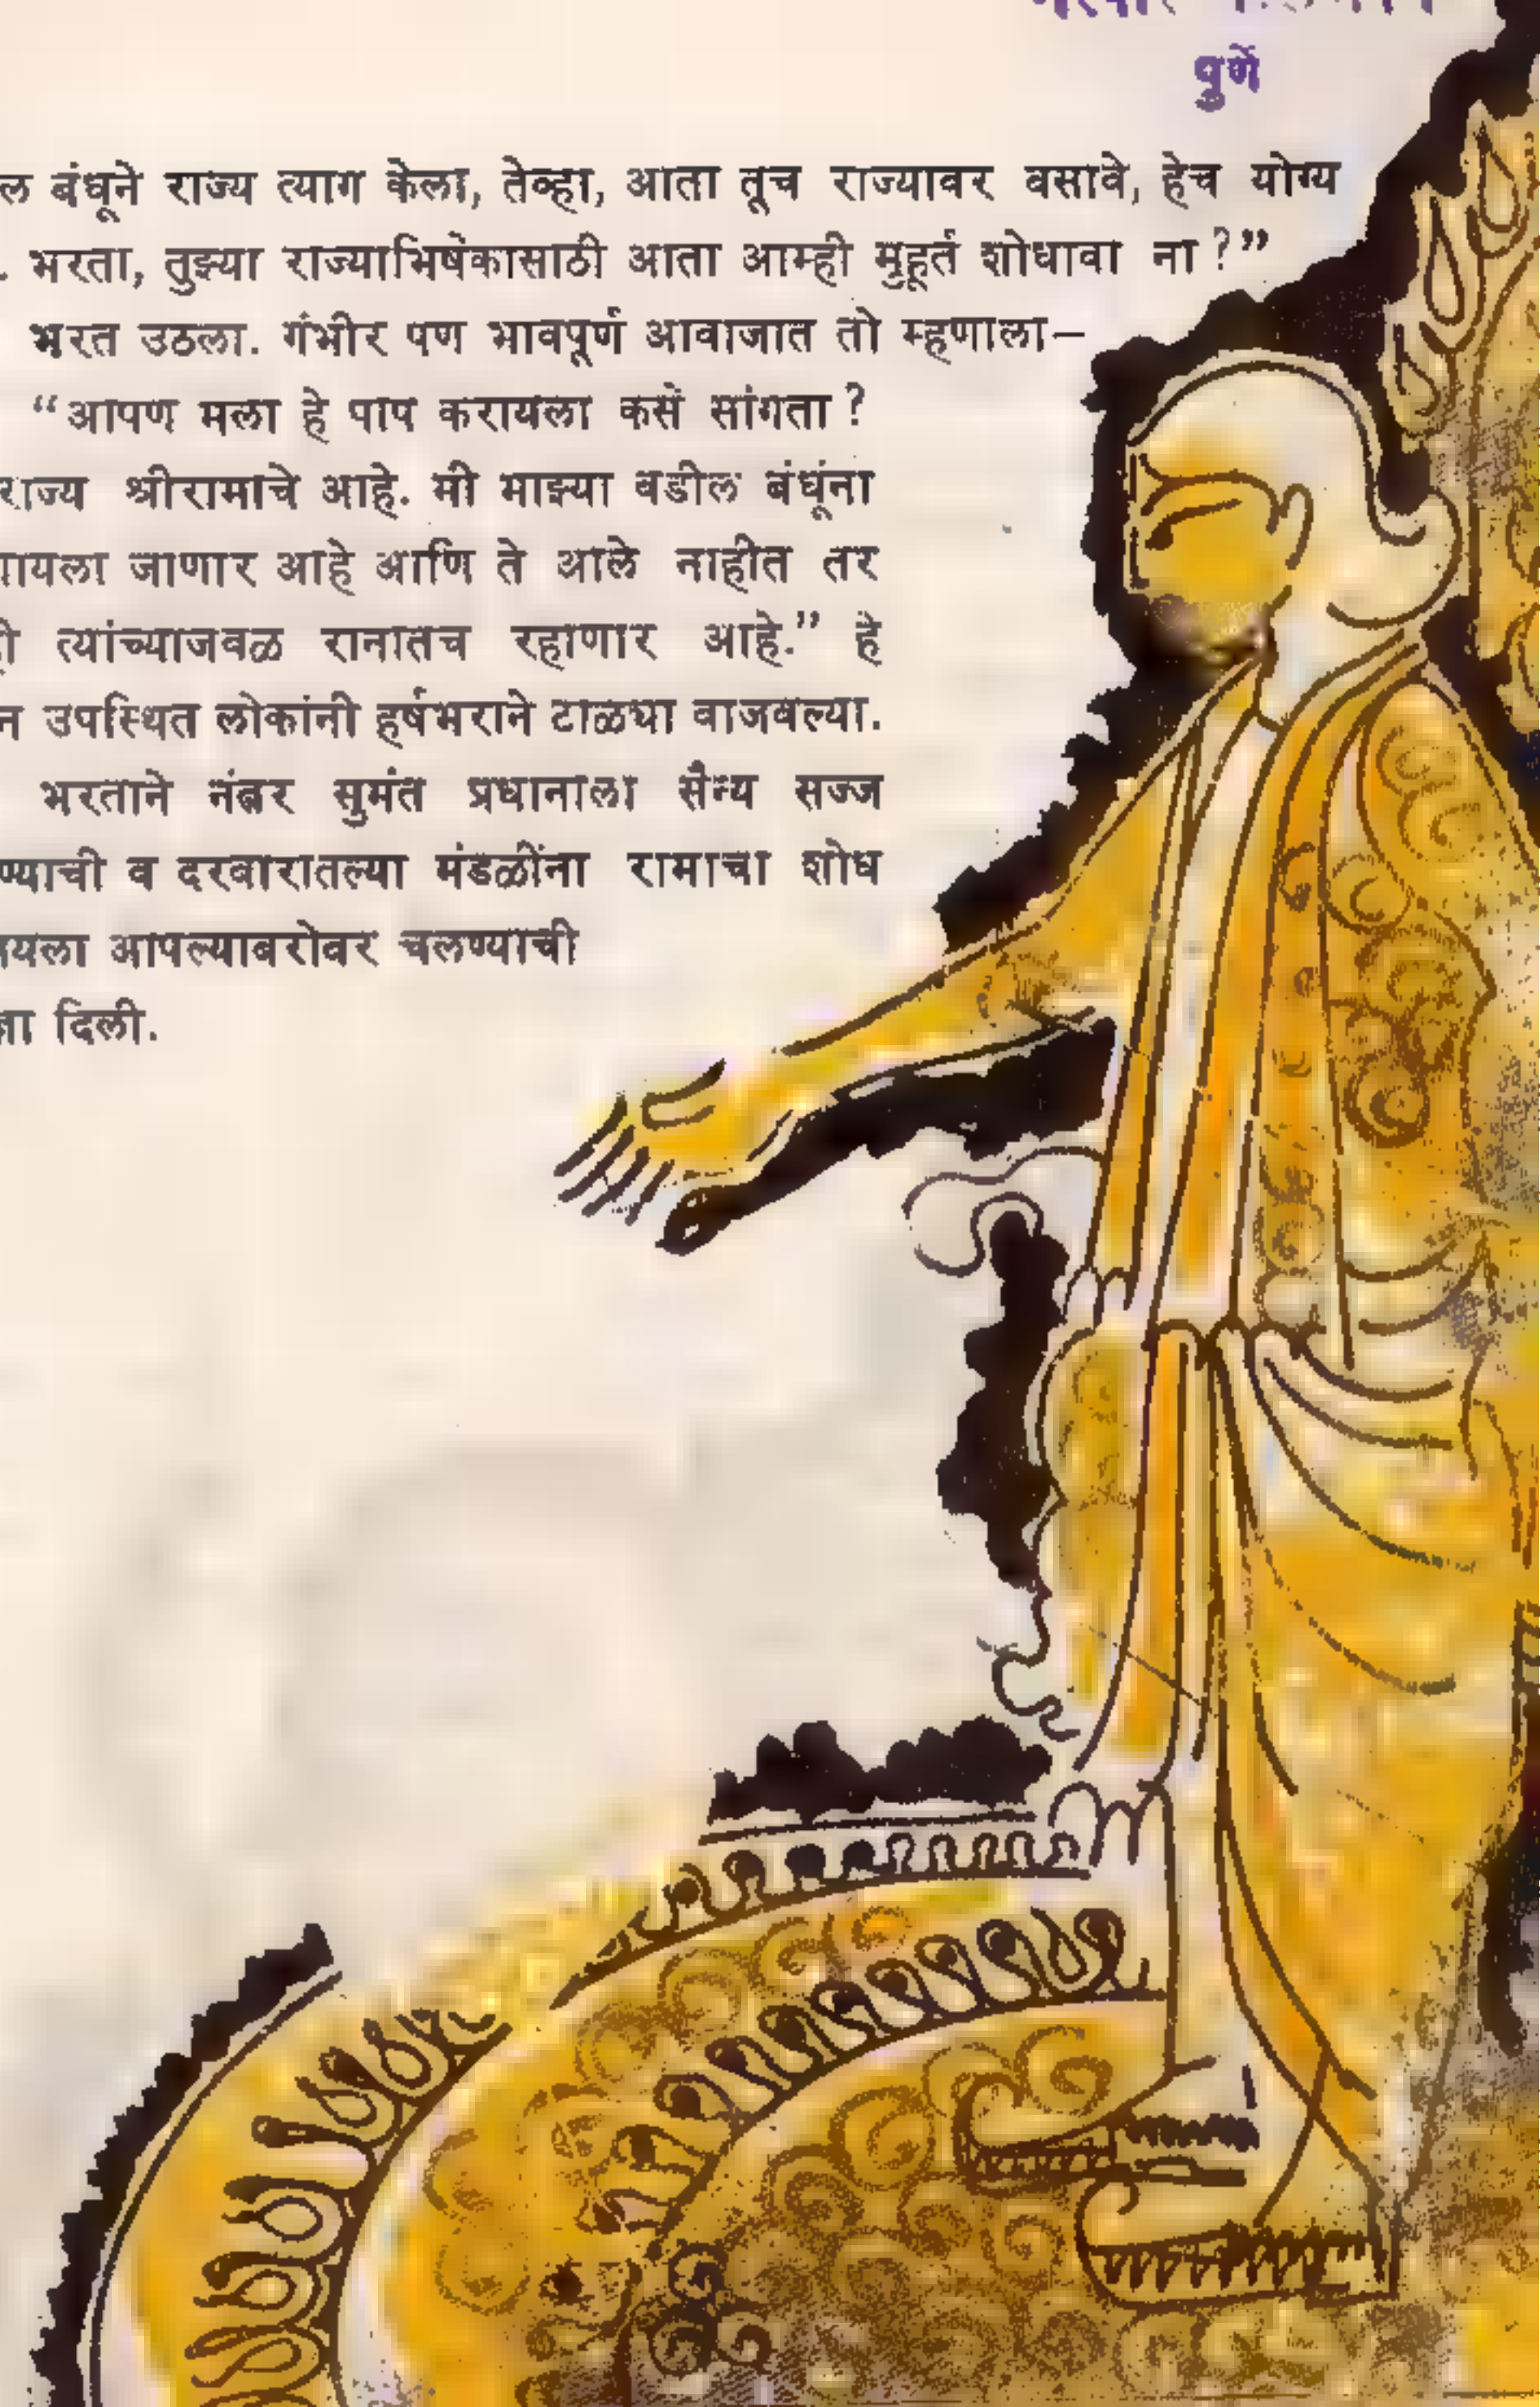 पुणें
बंधूने राज्य त्याग केला, तेव्हा, आता तूच राज्यावर बसावे, हेच योग्य
भरता, तुझ्या राज्याभिषेकासाठी आता आम्ही मुहूर्त शोधावा ना ?”
भरत उठला. गंभीर पण भावपूर्ण आवाजात तो म्हणाला—
“आपण मला हे पाप करायला कसे सांगता ?
राज्य श्रीरामाचे आहे. मी माझ्या वडील बंधूंना
जाणार आहे आणि ते आले नाहीत तर
त्यांच्याजवळ रानातच रहाणार आहे.” हे
उपस्थित लोकांनी हर्षभराने टाळ्या वाजवल्या.
भरताने नंतर सुमंत प्रधानाला सैन्य सज्ज
ण्याची व दरबारातल्या मंडळींना रामाचा शोध
आपल्याबरोबर चलण्याची
दिली.